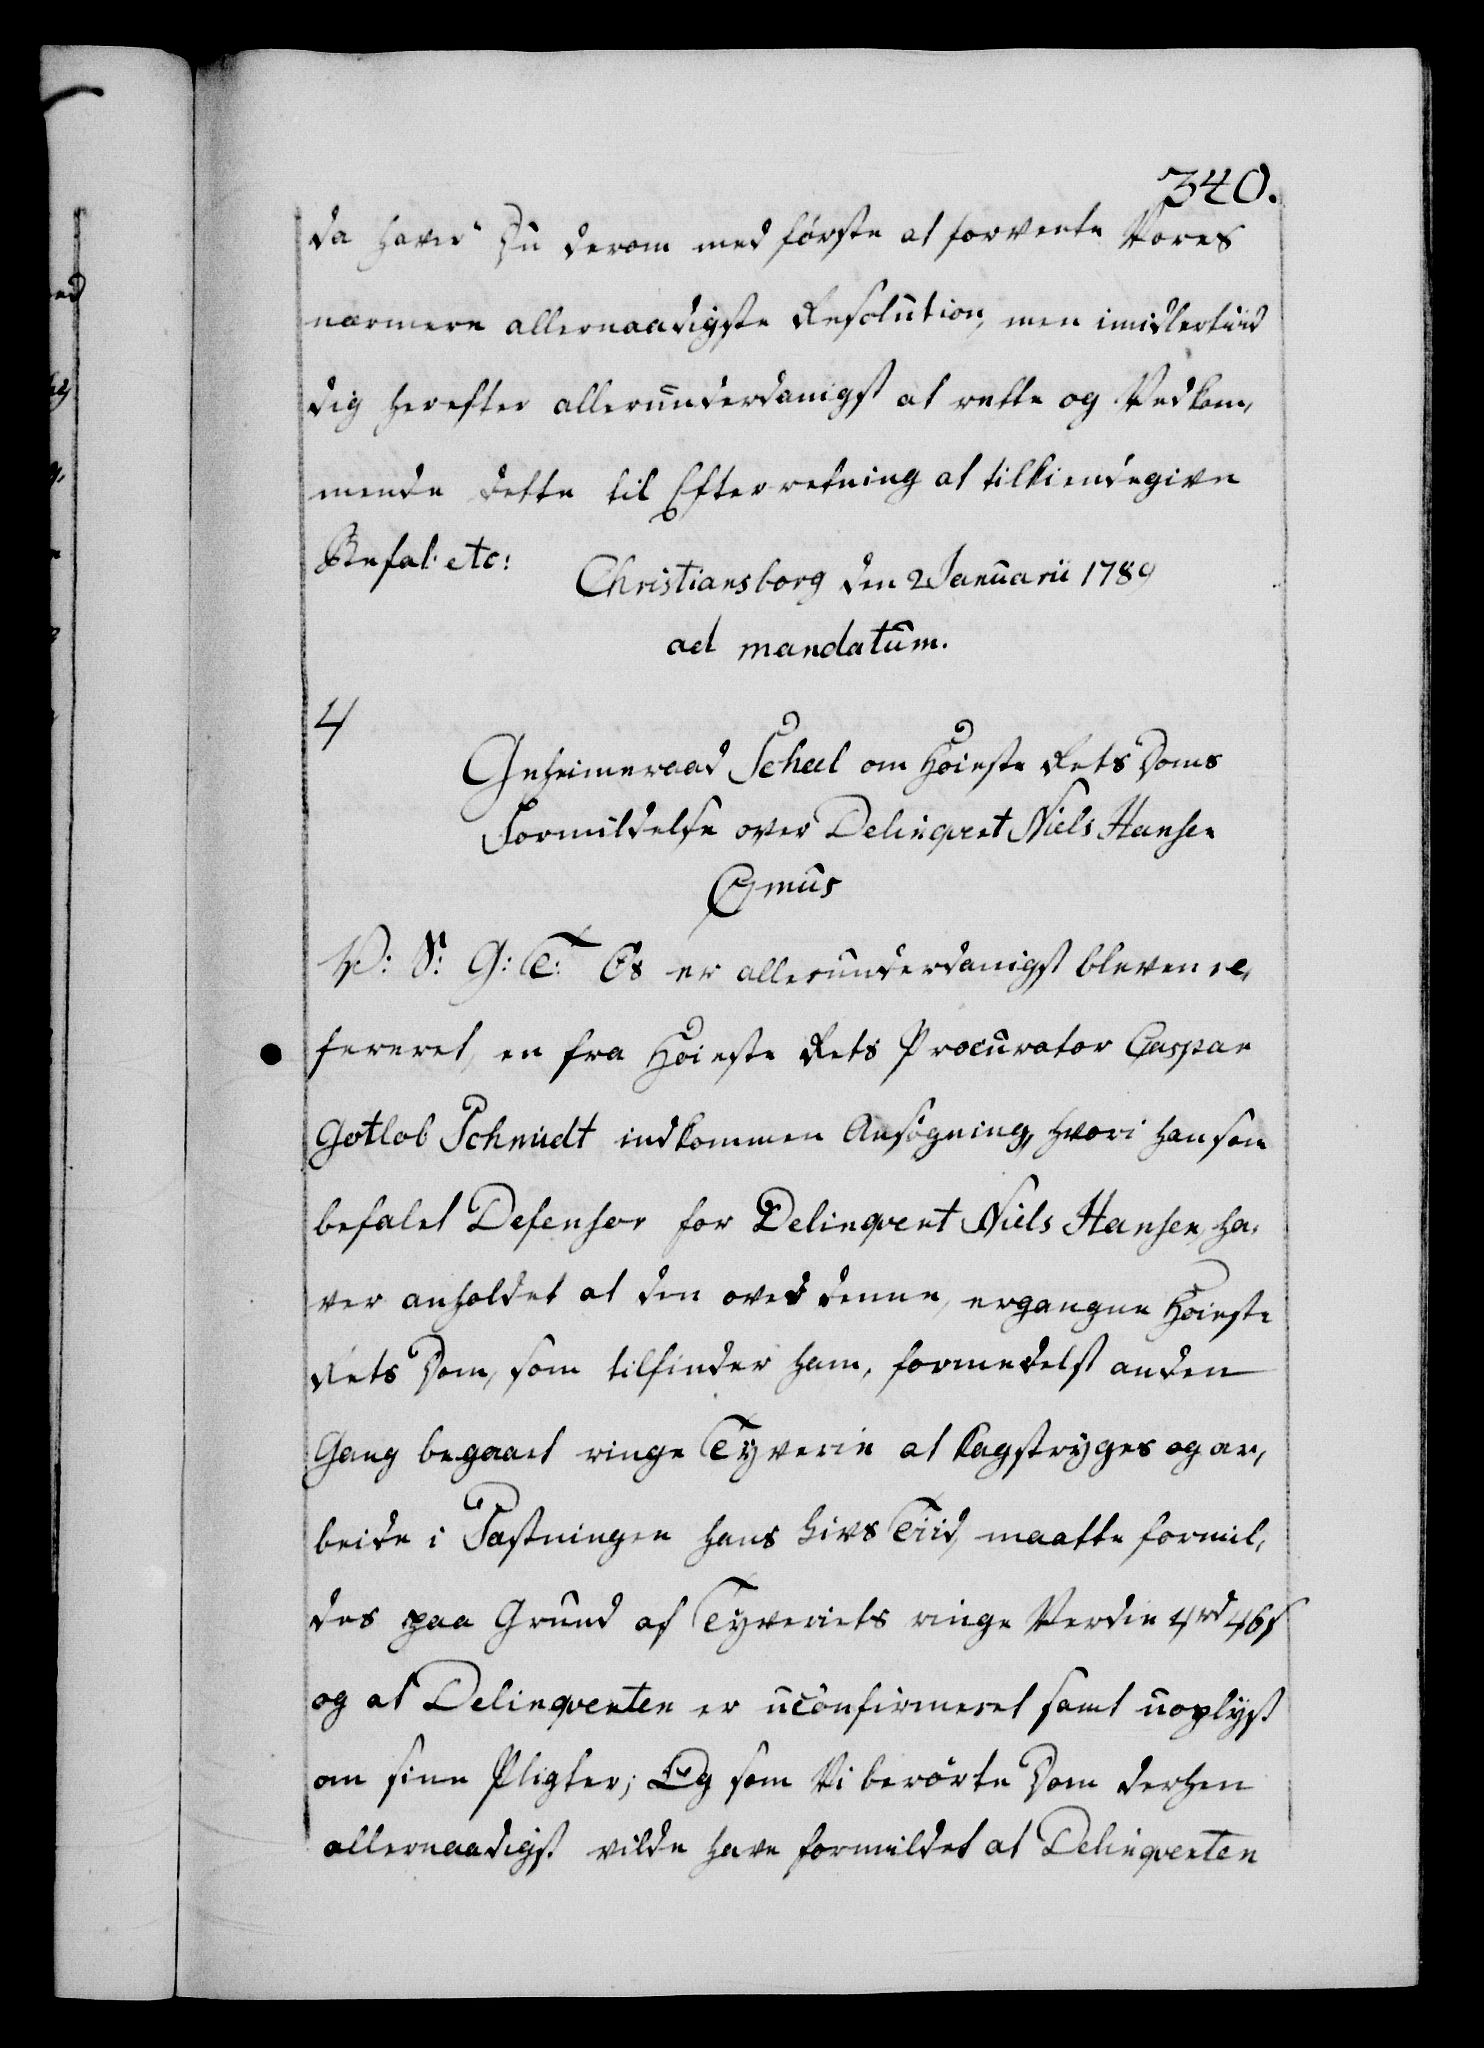 340.
da haver Du derom med første at forvente Vores
nærmere allernaadigste Resolution, men imidlertiid
dig herefter allerunderdanigst at rette og Vedkom,
mende dette til Efterretning at tilkiendegive
Befal: etc:
Christiansborg den 2 Januarii 1789
ad mandatum.
4
Geheimeraad Scheel om Høieste Rets Doms
Formildelse over Delinqvent Niels Hansen
C7mus
V: S: G: T: Os er allerunderdanigst bleven re,
fereret, en fra Høieste Rets Procurator Caspar
Gotlob Schmidt indkommen Ansøgning, hvori han som
befalet Defensor for Delinqvent Niels Hansen, ha,
ver anholdet at den over denne, ergangne Høieste
Rets Dom, som tilfinder ham, formedelst anden
Gang begaaet ringe Tyverie at kagstryges og ar,
beide i Fæstningen hans Livs Tiid, maatte formil,
des paa Grund af Tyveriets ringe Verdie 4rd 46s
og at Delinqventen er uconfirmeret samt uoplyst
om sine Pligter; Og som Vi berørte Dom derhen
allernaadigst vilde have formildet at Delinqventen